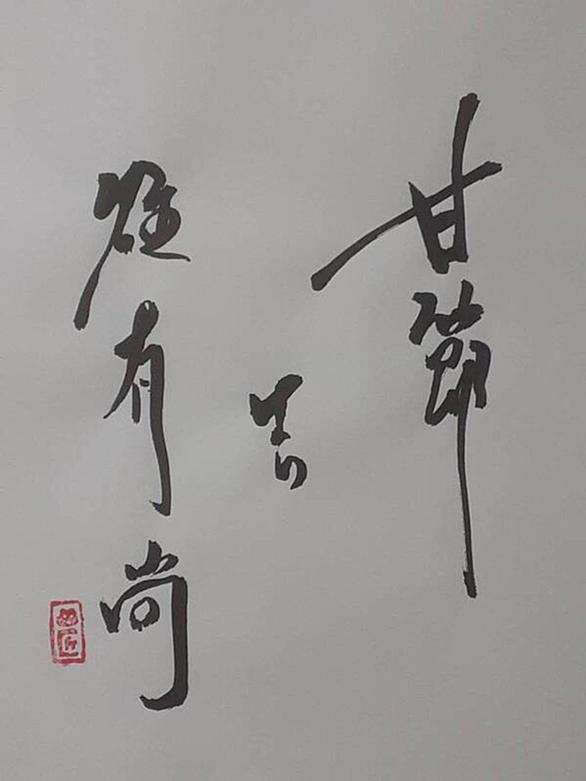 甘節
吉
往有尚